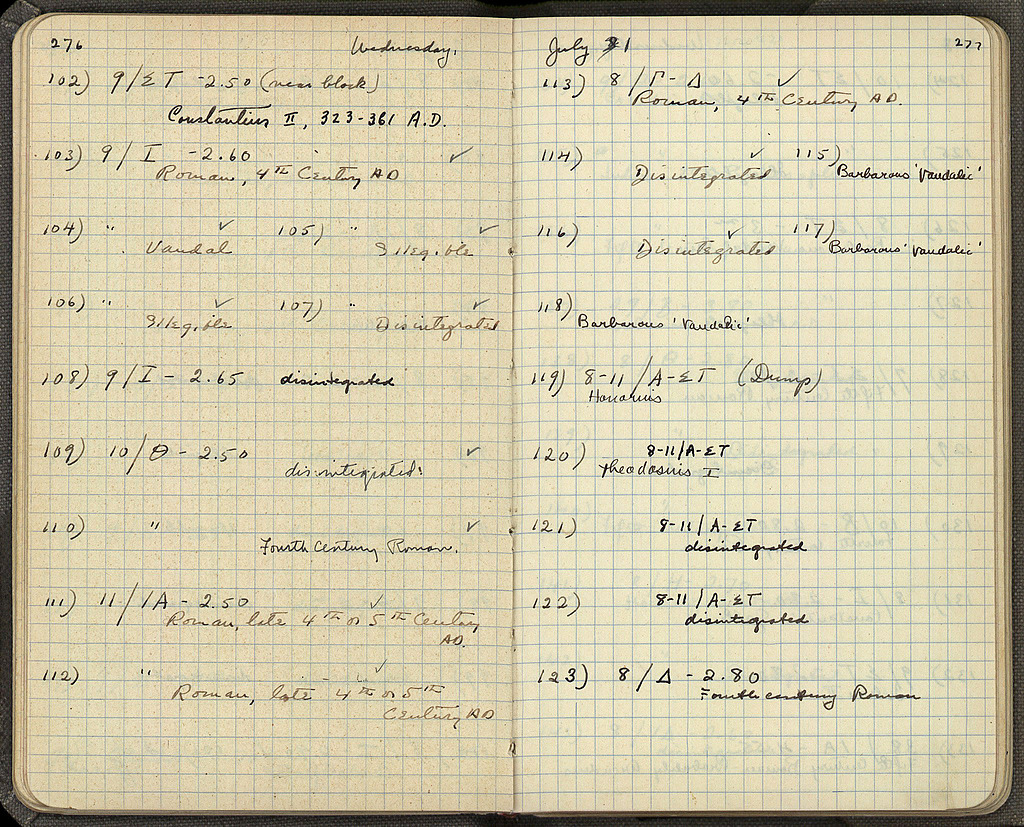 276 Wednesday,
102) 9/ΣΤ -2.50 (near block)
Constantius II, 323-361 A.D.
103) 9/I -2.60 ✓
Roman, 4TH Century AD
104) " ✓ 105) " ✓
Vandal Illegible
106) " ✓ 107) " ✓
Illegible Disintegrated
108) 9/I - 2.65 disintegrated
109) 10/Θ - 2.50 ✓
disintegrated.
110) " ✓
Fourth Century Roman.
111) 11/IA - 2.50 ✓
Roman, late 4TH or 5TH Century
AD.
112) " ✓
Roman, late 4TH or 5TH
Century AD
July 31 277
113) 8/Γ-Δ ✓
Roman, 4TH Century AD.
114) ✓ 115)
Disintegrated Barbarous 'Vandalic'
116) ✓ 117)
Disintegrated Barbarous 'Vandalic'
118)
Barbarous 'Vandalic'
119) 8-11/A-ΣΤ (Dump)
Honorius
120) 8-11/A-ΣΤ
Theodosius I
121) 8-11/A-ΣΤ
disintegrated
122) 8-11/A-ΣΤ
disintegrated
123) 8/Δ - 2.80
Fourth century Roman